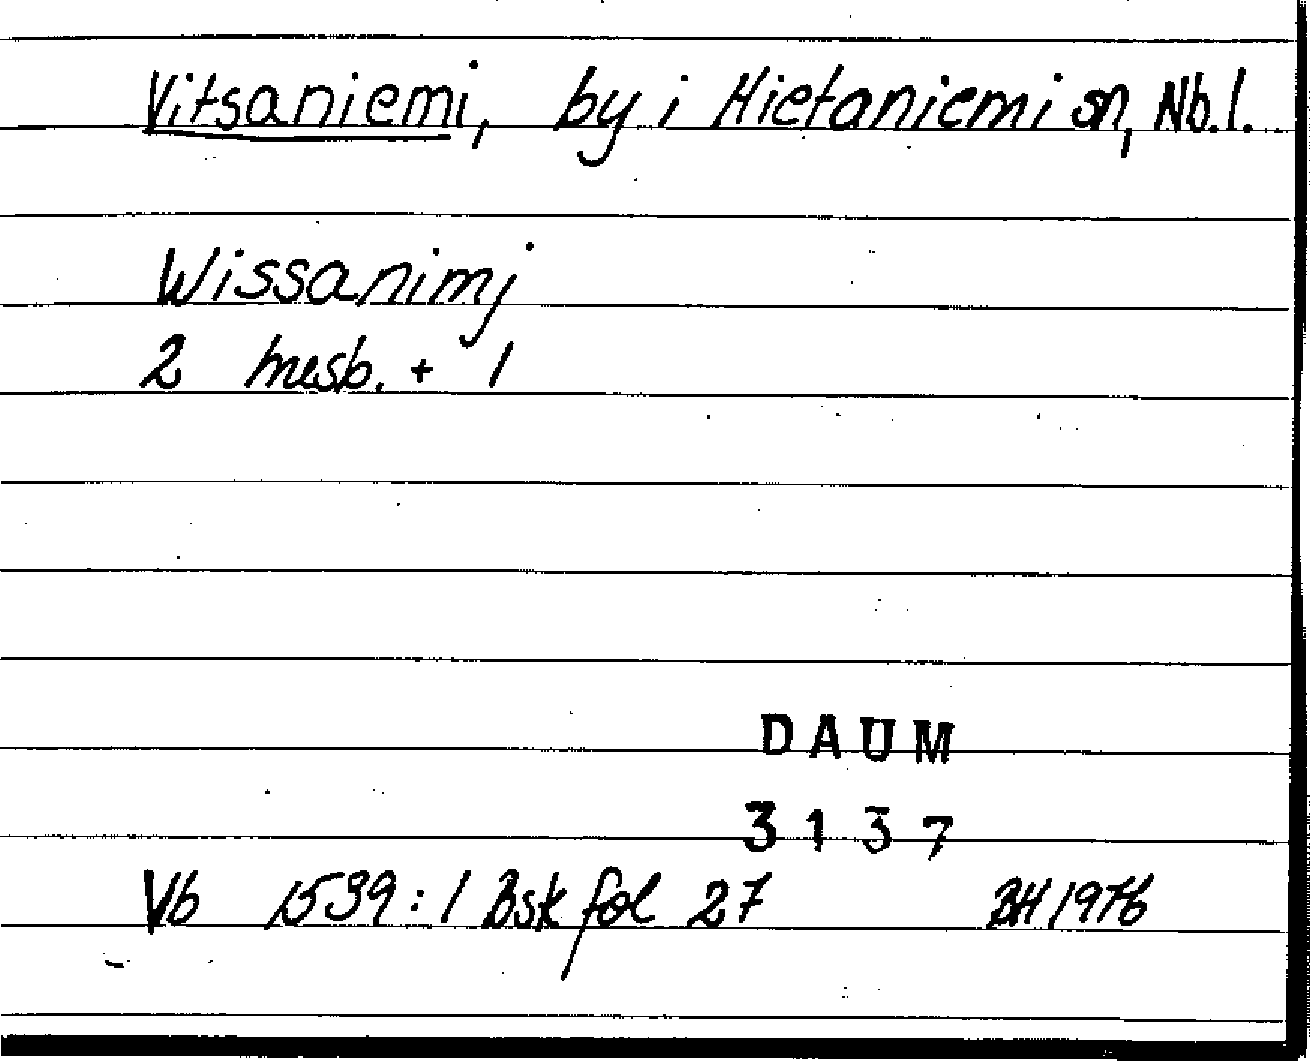 Vitsaniemi, by i Hietaniemi sn, Nb.l.
Wissanimj
2 mesb. + 1
DAUM
3137
Vb 1539:1 Bsk fol 27 BH 1976